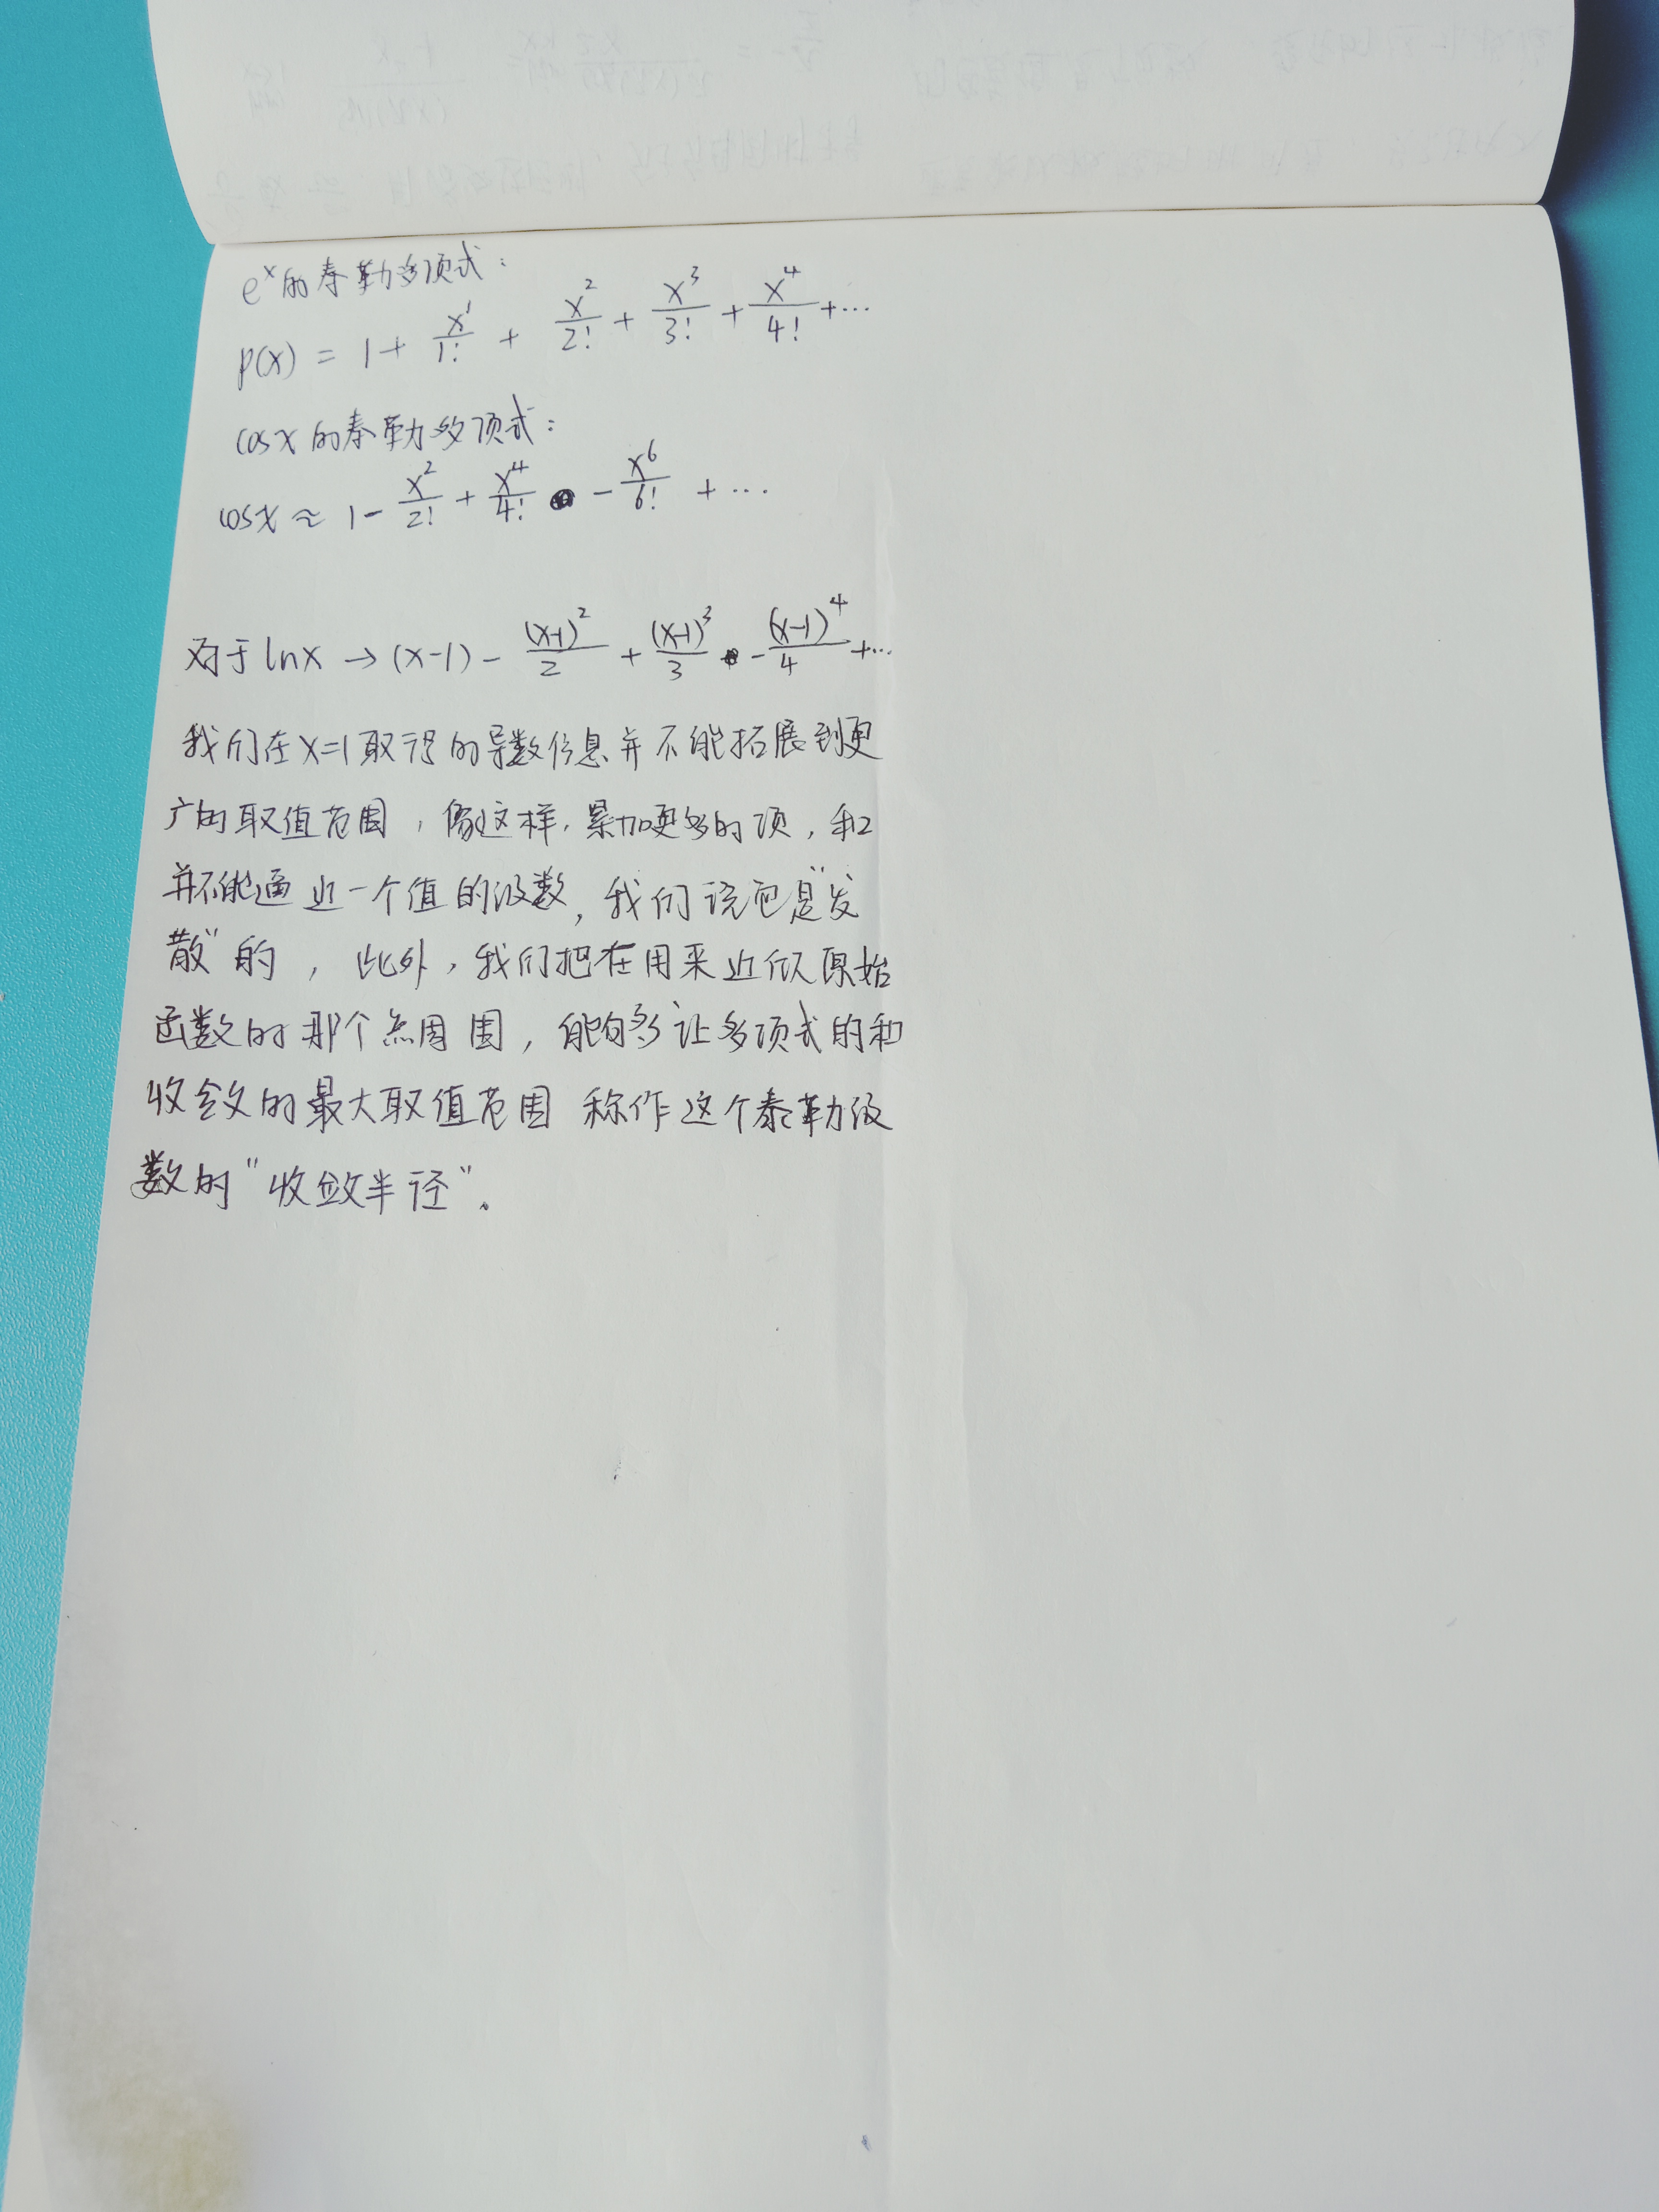 e^x的泰勒多项式：
P(x) = 1 + x^1/1! + x^2/2! + x^3/3! + x^4/4! + ···
cosx的泰勒多项式：
cosx ≈ 1 - x^2/2! + x^4/4! - x^6/6! + ···
对于lnx → (x-1) - (x-1)^2/2 + (x-1)^3/3 - (x-1)^4/4 + ···
我们在x=1取得的导数信息并不能拓展到更
广的取值范围，像这样，累加更多的项，和
并不能逼近一个值的级数，我们说它是"发
散"的，此外，我们把在用来近似原始
函数的那个点周围，能够让多项式的和
收敛的最大取值范围称作这个泰勒级
数的"收敛半径"。